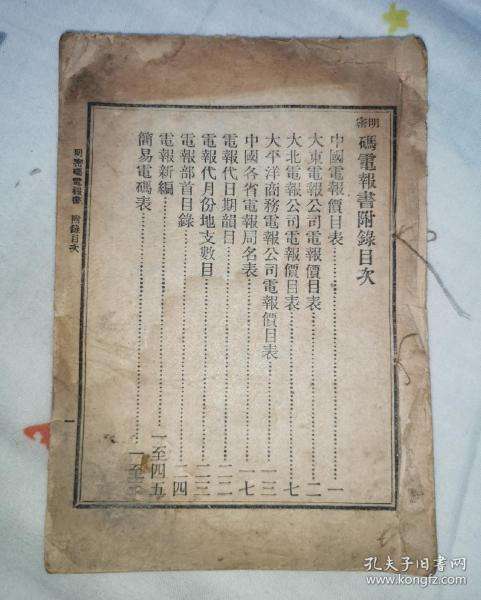 明密碼電報書附錄目次
中國電報價目表 一
大東電報公司電報價目表 二
大北電報公司電報價目表 七
太平洋商務電報公司電報價目表 一三
中國各省電報局名表 一七
電報代日期韻目 二二
電報代月份地支數目 二三
電報部首目錄 二四
電報新編 一至四五
簡易電碼表 一至
明密碼電報書 附錄目次
一
孔夫子旧书网
www.kongfz.com